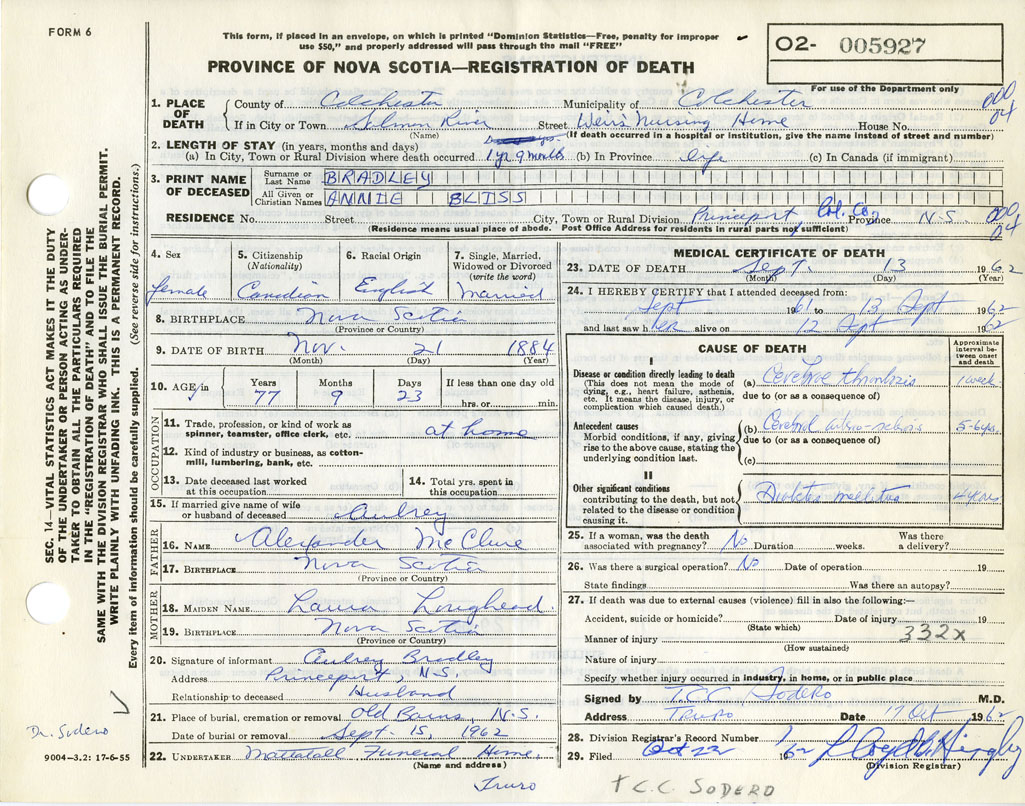 FORM 6
This form, if placed in an envelope, on which is printed "Dominion Statistics—Free, penalty for improper
use $50," and properly addressed will pass through the mail "FREE"
02- 005927
For use of the Department only
PROVINCE OF NOVA SCOTIA—REGISTRATION OF DEATH
SEC. 14—VITAL STATISTICS ACT MAKES IT THE DUTY
OF THE UNDERTAKER OR PERSON ACTING AS UNDER-
TAKER TO OBTAIN ALL THE PARTICULARS REQUIRED
IN THE "REGISTRATION OF DEATH" AND TO FILE THE
SAME WITH THE DIVISION REGISTRAR WHO SHALL ISSUE THE BURIAL PERMIT.
WRITE PLAINLY WITH UNFADING INK. THIS IS A PERMANENT RECORD.
Every item of information should be carefully supplied. (See reverse side for instructions.)
1. PLACE OF DEATH
County of Colchester Municipality of Colchester 000
04
If in City or Town Salmon River Street Weir's Nursing Home House No.
(Name) (If death occurred in a hospital or institution, give the name instead of street and number)
2. LENGTH OF STAY (in years, months and days)
(a) In City, Town or Rural Division where death occurred 1 yr 9 months (b) In Province life (c) In Canada (if immigrant)
3. PRINT NAME OF DECEASED
Surname or Last Name BRADLEY
All Given or Christian Names ANNIE BLISS
RESIDENCE No. Street City, Town or Rural Division Princeport, Col. Co. Province N.S. 000
04
(Residence means usual place of abode. Post Office Address for residents in rural parts not sufficient)
4. Sex
female
5. Citizenship
(Nationality)
Canadian
6. Racial Origin
English
7. Single, Married,
Widowed or Divorced
(write the word)
Married
8. BIRTHPLACE Nova Scotia
(Province or Country)
9. DATE OF BIRTH Nov. 21 1884
(Month) (Day) (Year)
10. AGE in
Years Months Days If less than one day old
77 9 23 hrs. or min.
OCCUPATION
11. Trade, profession, or kind of work as
spinner, teamster, office clerk, etc. at home
12. Kind of industry or business, as cotton-
mill, lumbering, bank, etc.
13. Date deceased last worked
at this occupation
14. Total yrs. spent in
this occupation
15. If married give name of wife
or husband of deceased Aubrey
FATHER
16. NAME Alexander McClure
17. BIRTHPLACE Nova Scotia
(Province or Country)
MOTHER
18. MAIDEN NAME Laura Loughead
19. BIRTHPLACE Nova Scotia
(Province or Country)
20. Signature of informant Aubrey Bradley
Address Princeport, N.S.
Relationship to deceased Husband
21. Place of burial, cremation or removal Old Barns, N.S.
Date of burial or removal Sept. 15, 1962
22. UNDERTAKER Mattatall Funeral Home,
(Name and address)
Truro
Dr. Sodero
9004—3.2: 17-6-55
MEDICAL CERTIFICATE OF DEATH
23. DATE OF DEATH Sept. 13 1962
(Month) (Day) (Year)
24. I HEREBY CERTIFY that I attended deceased from:
Sept 1961 to 13 Sept 1962
and last saw her alive on 12 Sept 1962
CAUSE OF DEATH
Approximate
interval be-
tween onset
and death
I
Disease or condition directly leading to death
(This does not mean the mode of
dying, e.g., heart failure, asthenia,
etc. It means the disease, injury, or
complication which caused death.)
(a) Cerebral thrombosis 1 week
due to (or as a consequence of)
Antecedent causes
Morbid conditions, if any, giving
rise to the above cause, stating the
underlying condition last.
(b) Cerebral 5-6 yrs.
due to (or as a consequence of)
(c)
II
Other significant conditions
contributing to the death, but not
related to the disease or condition
causing it.
Diabetes mellitus 4 years
25. If a woman, was the death
associated with pregnancy? No Duration weeks. Was there
a delivery?
26. Was there a surgical operation? No Date of operation 19
State findings Was there an autopsy?
27. If death was due to external causes (violence) fill in also the following:—
Accident, suicide or homicide? Date of injury 19
(State which) 332x
Manner of injury
(How sustained)
Nature of injury
Specify whether injury occurred in industry, in home, or in public place
Signed by T.C.C. Sodero M.D.
Address Truro Date 17 Oct 1962
28. Division Registrar's Record Number
29. Filed Oct 22 1962
(Division Registrar)
T C.C. SODERO